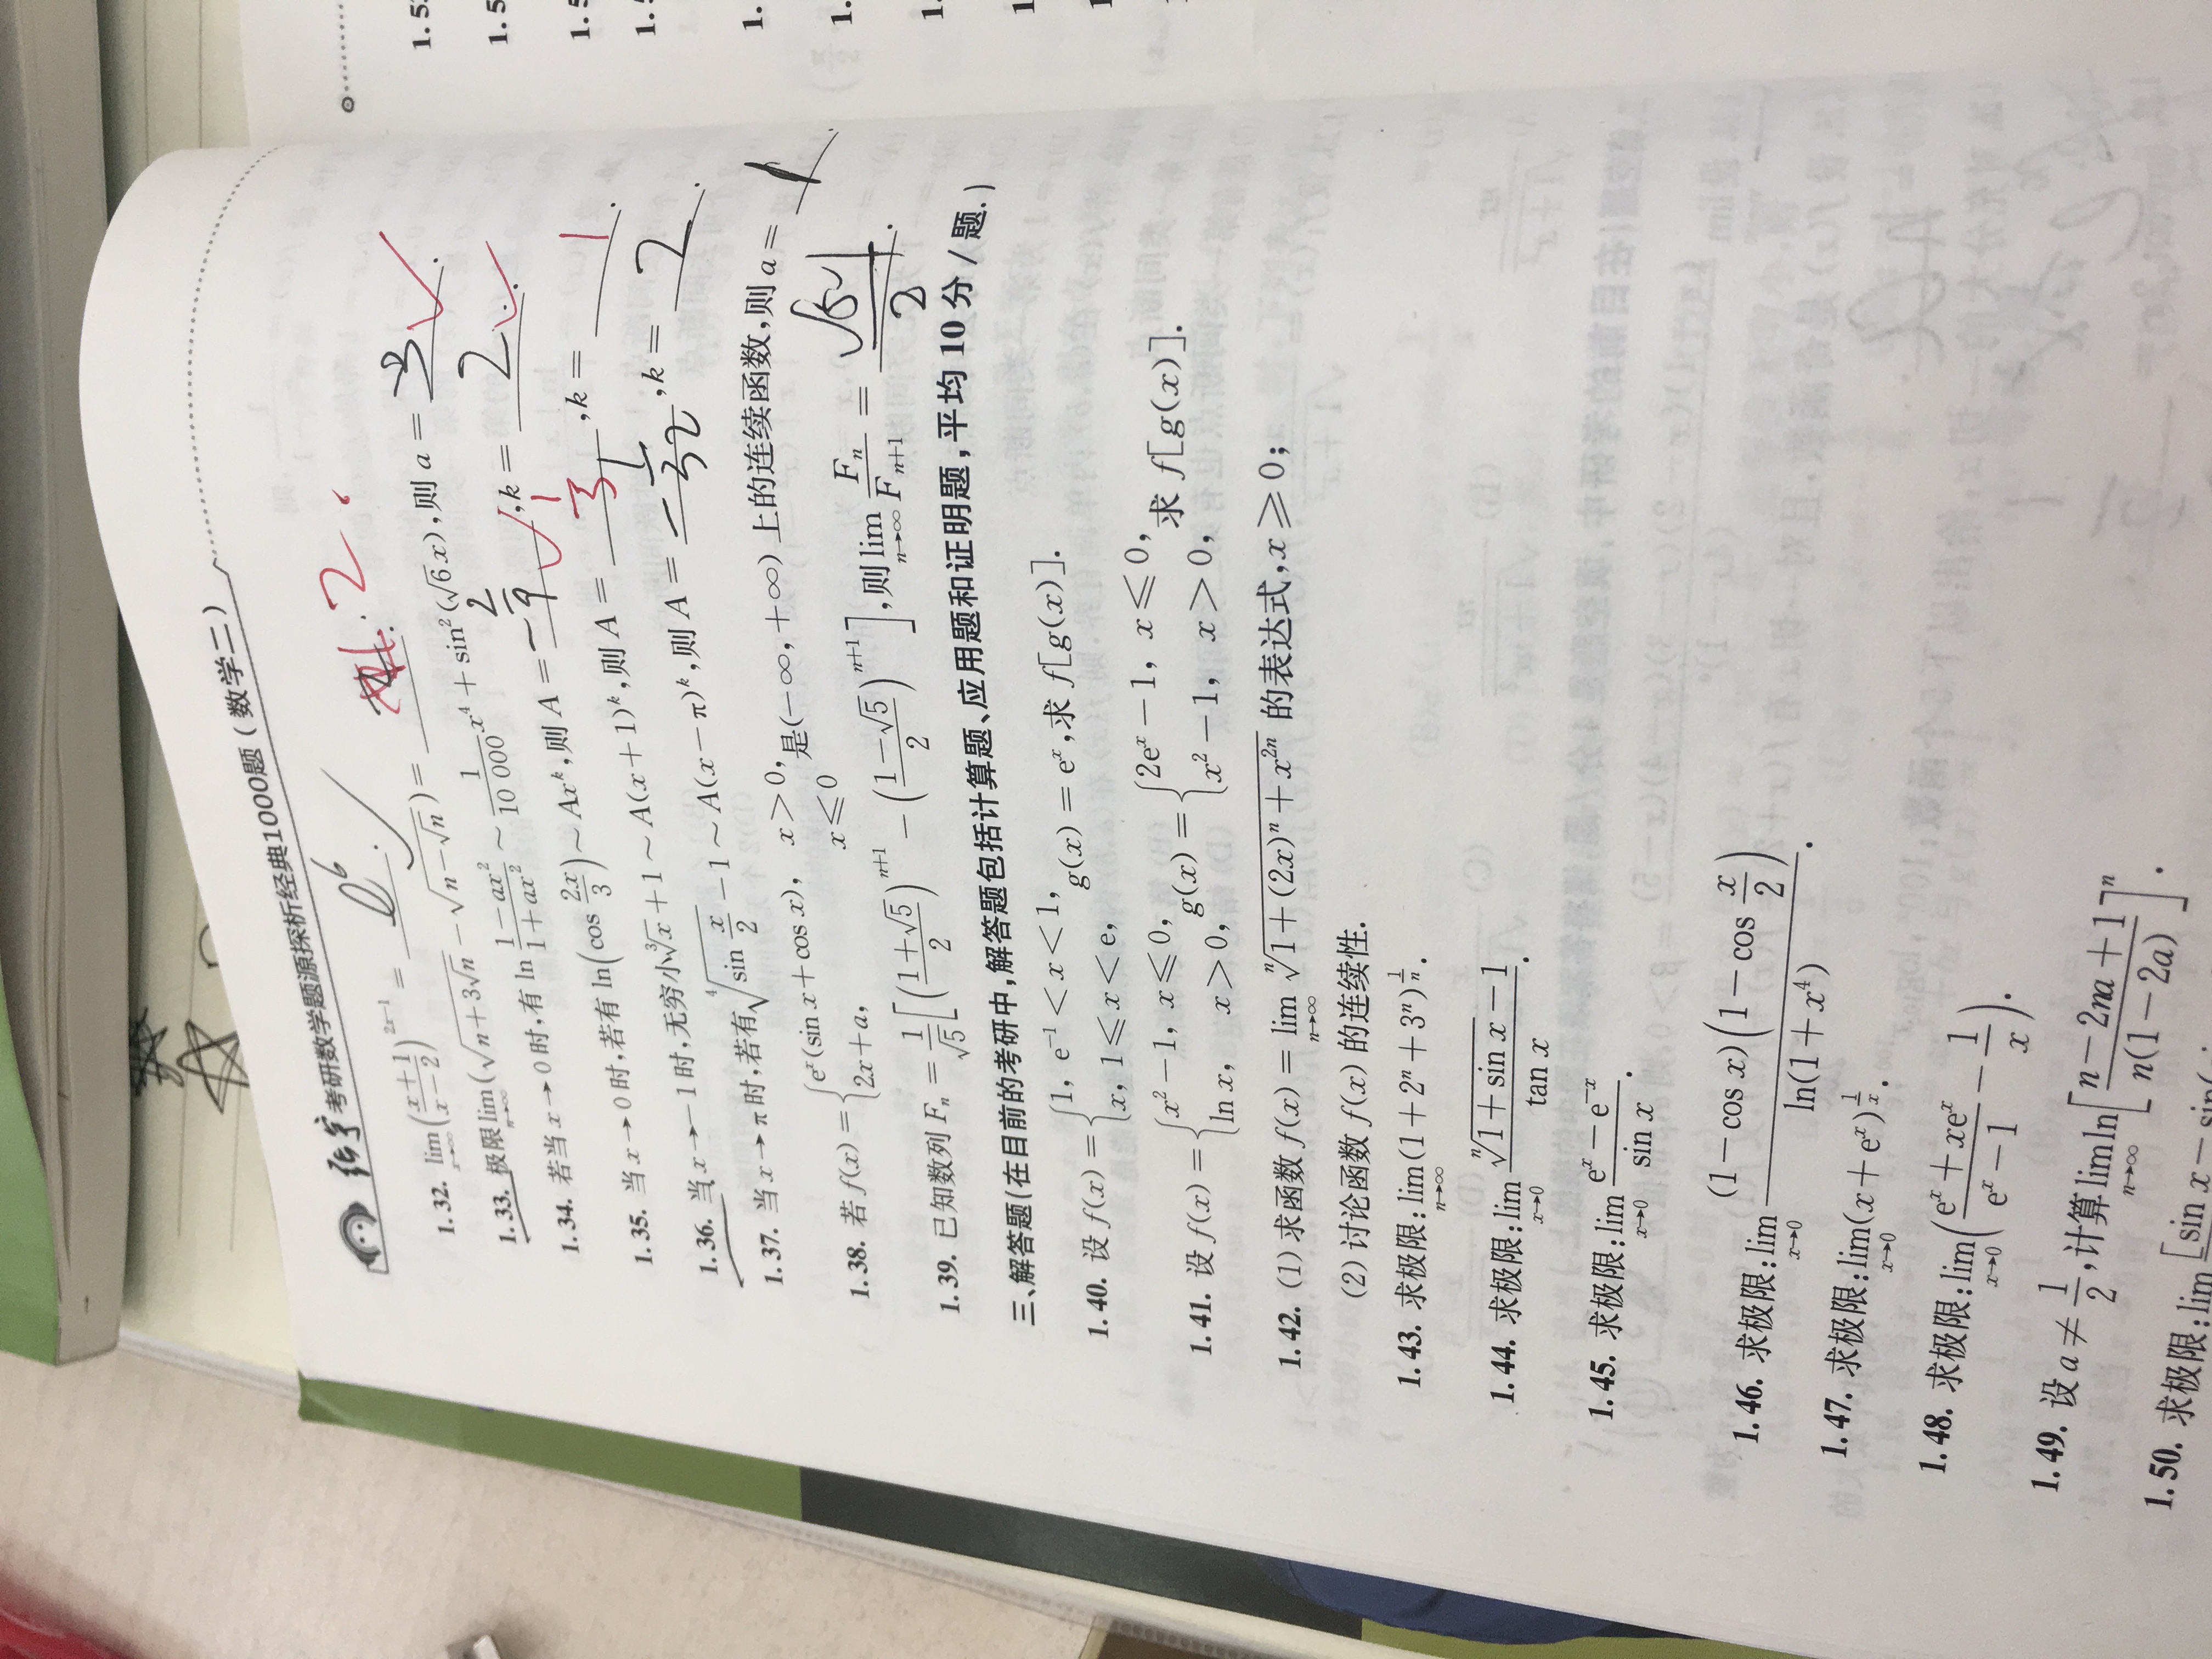 张宇考研数学题源探析经典1000题(数学二)
1.32. $\lim_{x\to\infty}\left(\frac{x+1}{x-2}\right)^{2x-1}=$ $e^6$.
1.33. 极限$\lim_{n\to\infty}(\sqrt{n+3\sqrt{n}}-\sqrt{n-\sqrt{n}})=$ 2.
1.34. 若当$x\to0$时,有$\ln\frac{1-ax^2}{1+ax^2}\sim\frac{1}{10\,000}x^4+\sin^2(\sqrt{6}x)$,则$a=$ -3.
1.35. 当$x\to0$时,若有$\ln\left(\cos\frac{2x}{3}\right)\sim Ax^k$,则$A=$ $-\frac{2}{9}$,$k=$ 2.
1.36. 当$x\to-1$时,无穷小$\sqrt[3]{x}+1\sim A(x+1)^k$,则$A=$ $\frac{1}{3}$,$k=$ 1.
1.37. 当$x\to\pi$时,若有$\sqrt[4]{\sin\frac{x}{2}}-1\sim A(x-\pi)^k$,则$A=$ $-\frac{1}{32}$,$k=$ 2.
1.38. 若$f(x)=\begin{cases}e^x(\sin x+\cos x), & x>0,\\2x+a, & x\leqslant0\end{cases}$是$(-\infty,+\infty)$上的连续函数,则$a=$ 1.
1.39. 已知数列$F_n=\frac{1}{\sqrt{5}}\left[\left(\frac{1+\sqrt{5}}{2}\right)^{n+1}-\left(\frac{1-\sqrt{5}}{2}\right)^{n+1}\right]$,则$\lim_{n\to\infty}\frac{F_n}{F_{n+1}}=$ $\frac{\sqrt{5}-1}{2}$.
三、解答题(在目前的考研中,解答题包括计算题、应用题和证明题,平均10分/题.)
1.40. 设$f(x)=\begin{cases}1, & e^{-1}<x<1,\\x, & 1\leqslant x<e,\end{cases}$ $g(x)=e^x$,求$f[g(x)]$.
1.41. 设$f(x)=\begin{cases}x^2-1, & x\leqslant0,\\\ln x, & x>0,\end{cases}$ $g(x)=\begin{cases}2e^x-1, & x\leqslant0,\\x^2-1, & x>0,\end{cases}$求$f[g(x)]$.
1.42. (1)求函数$f(x)=\lim_{n\to\infty}\sqrt[n]{1+(2x)^n+x^{2n}}$的表达式,$x\geqslant0$;
(2)讨论函数$f(x)$的连续性.
1.43. 求极限:$\lim_{n\to\infty}(1+2^n+3^n)^{\frac{1}{n}}$.
1.44. 求极限:$\lim_{x\to0}\frac{\sqrt[n]{1+\sin x}-1}{\tan x}$.
1.45. 求极限:$\lim_{x\to0}\frac{e^x-e^{-x}}{\sin x}$.
1.46. 求极限:$\lim_{x\to0}\frac{(1-\cos x)\left(1-\cos\frac{x}{2}\right)}{\ln(1+x^4)}$.
1.47. 求极限:$\lim_{x\to0}(x+e^x)^{\frac{1}{x}}$.
1.48. 求极限:$\lim_{x\to0}\left(\frac{e^x+xe^x}{e^x-1}-\frac{1}{x}\right)$.
1.49. 设$a\neq\frac{1}{2}$,计算$\lim_{n\to\infty}\ln\left[\frac{n-2na+1}{n(1-2a)}\right]^n$.
1.50. 求极限:lim [sin x - sin(